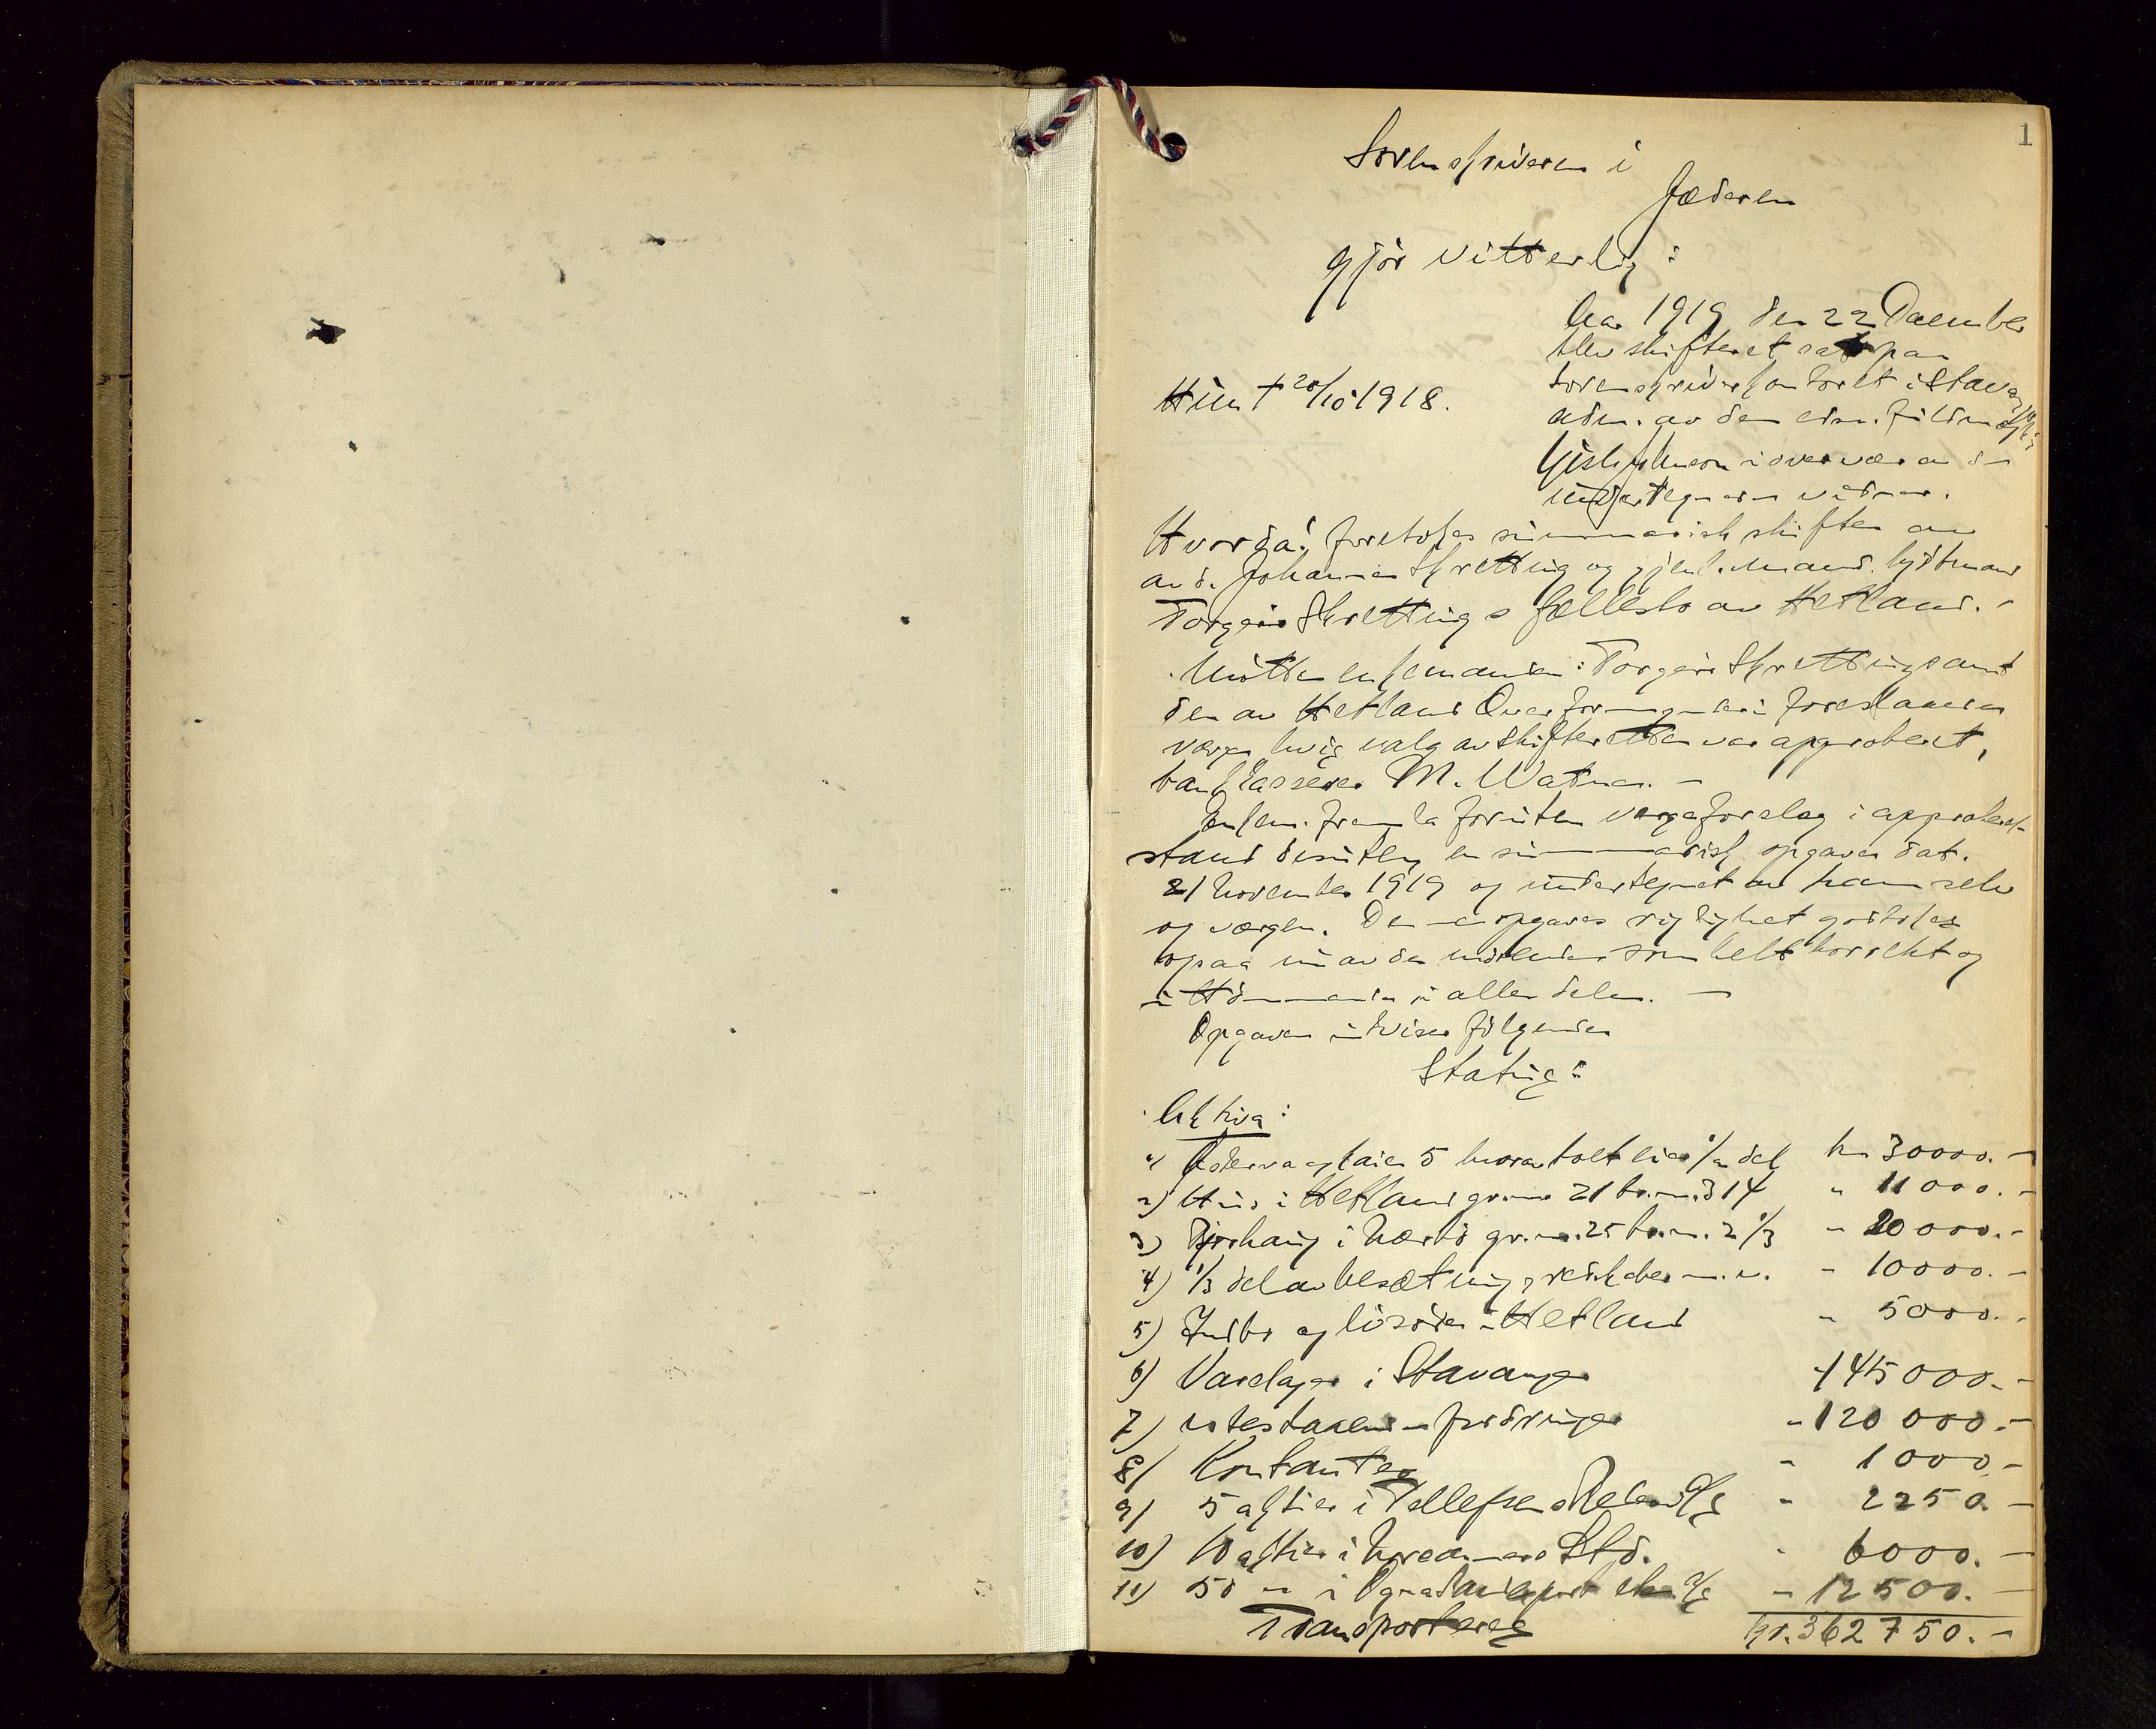 1
Sorenskriveren i
Jæderen
gjør vitterlig:
Aar 1919 den 22 December
blev skifteret sat paa
sorenskriverkontoret i Stavanger
adm. av den edsv. fuldmægtig
i overvær av de
undertegnede vidner.
Hun † 20/10 1918.
Hvorda! foretokes summarisk skifte av
avd. Johanne Skretting og gjenl. mand kjøbmand
Torger Skrettings fællesbo av Hetland. -
Møtte enkemanden: Torger Skretting samt
den av Hetland Overformynderi foreslaaede
verge, hvis valg av skifteretten var approbert,
bankkasserer M. Watne. -
Enkem. fremla foruten vergeforslag i approbert
stand desuten en summarisk opgave dat.
21 November 1919 og undertegnet av ham selv
og vergen. Denne opgaves rigtighet godtokes
ogsaa nu av de mødende som helt korrekt og
uttømmende i alle dele. -
Opgaven utviser følgende
Status:
Aktiva:
1) 5 hvorav boet eier 1/2 del kr 30000. -
2) Hus i Hetland gr.no 21 br.no. 314 " 11000. -
3) i Nærbø gr.no. 25 br.no. 2 1/3 " 20000. -
4) 1/3 del av besætning, redskaber m.v. " 10000. -
5) Indbo og løsøre i Hetland " 5000. -
6) Varelager i Stavanger " 145000. -
7) utestaaende fordringer " 120000. -
8) Kontanter " 1000 -
9) 5 aktier i Tollefsens Rederi A/S " 2250. -
10) 10 aktier i Ltd. " 6000. -
11) 50 " i A/S " 12500. -
Transporteres kr. 362750. -